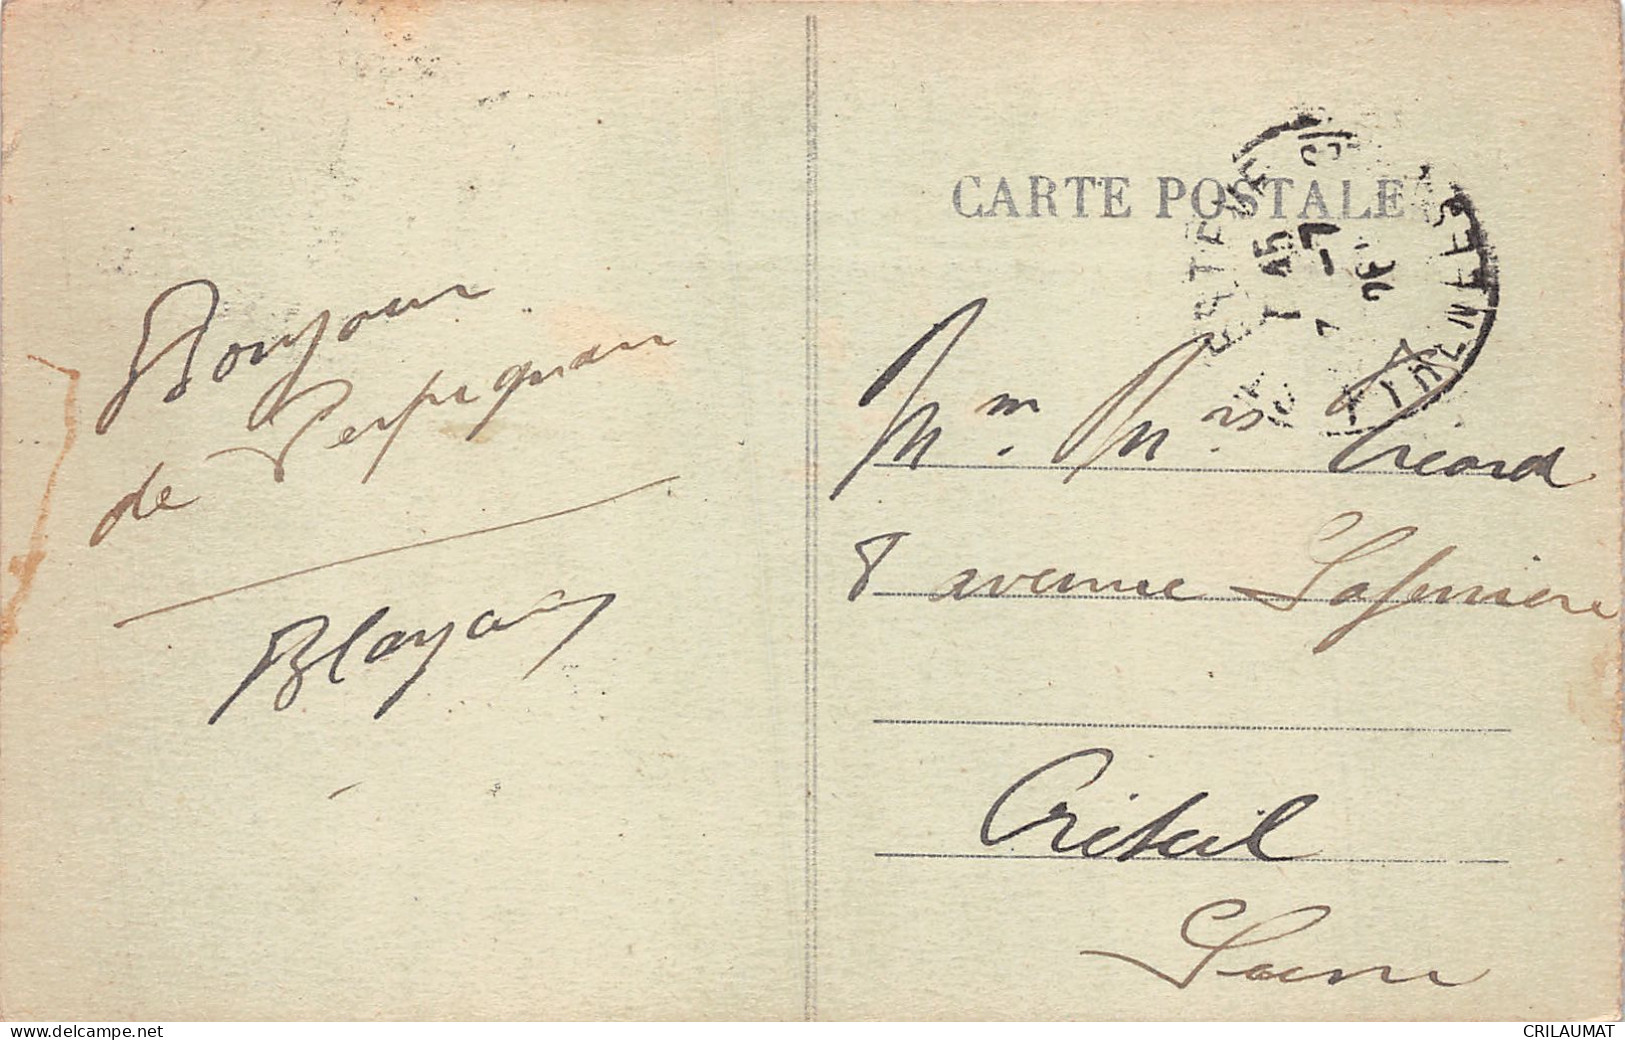 CARTE POSTALE
Bonjour
de Perpignan
Mm. Mris Picard
8 avenue Laferrière
Créteil
Seine
www.delcampe.net
CRILAUMAT